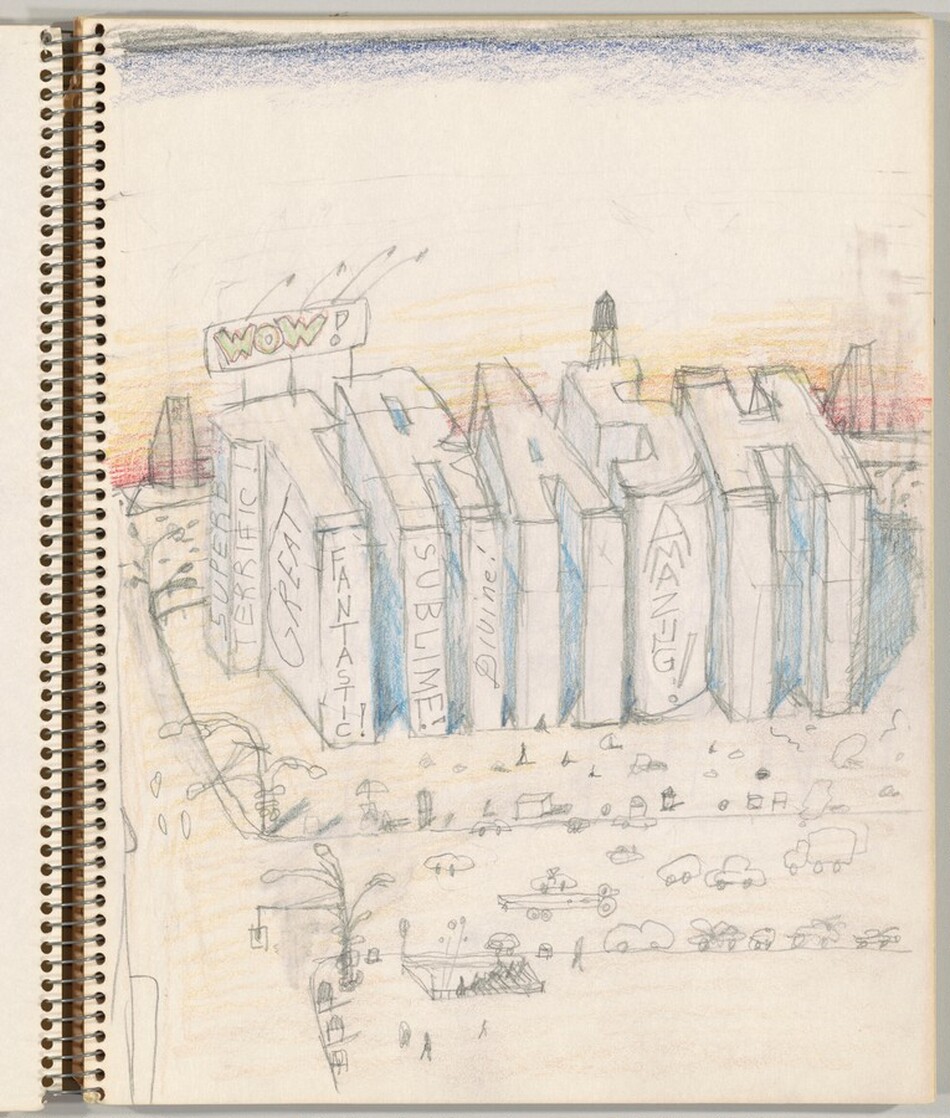 WOW!
TRASH
SUPERB
TERRIFIC!
GREAT
FANTASTIC!
SUBLIME!
Divine!
AMAZING!